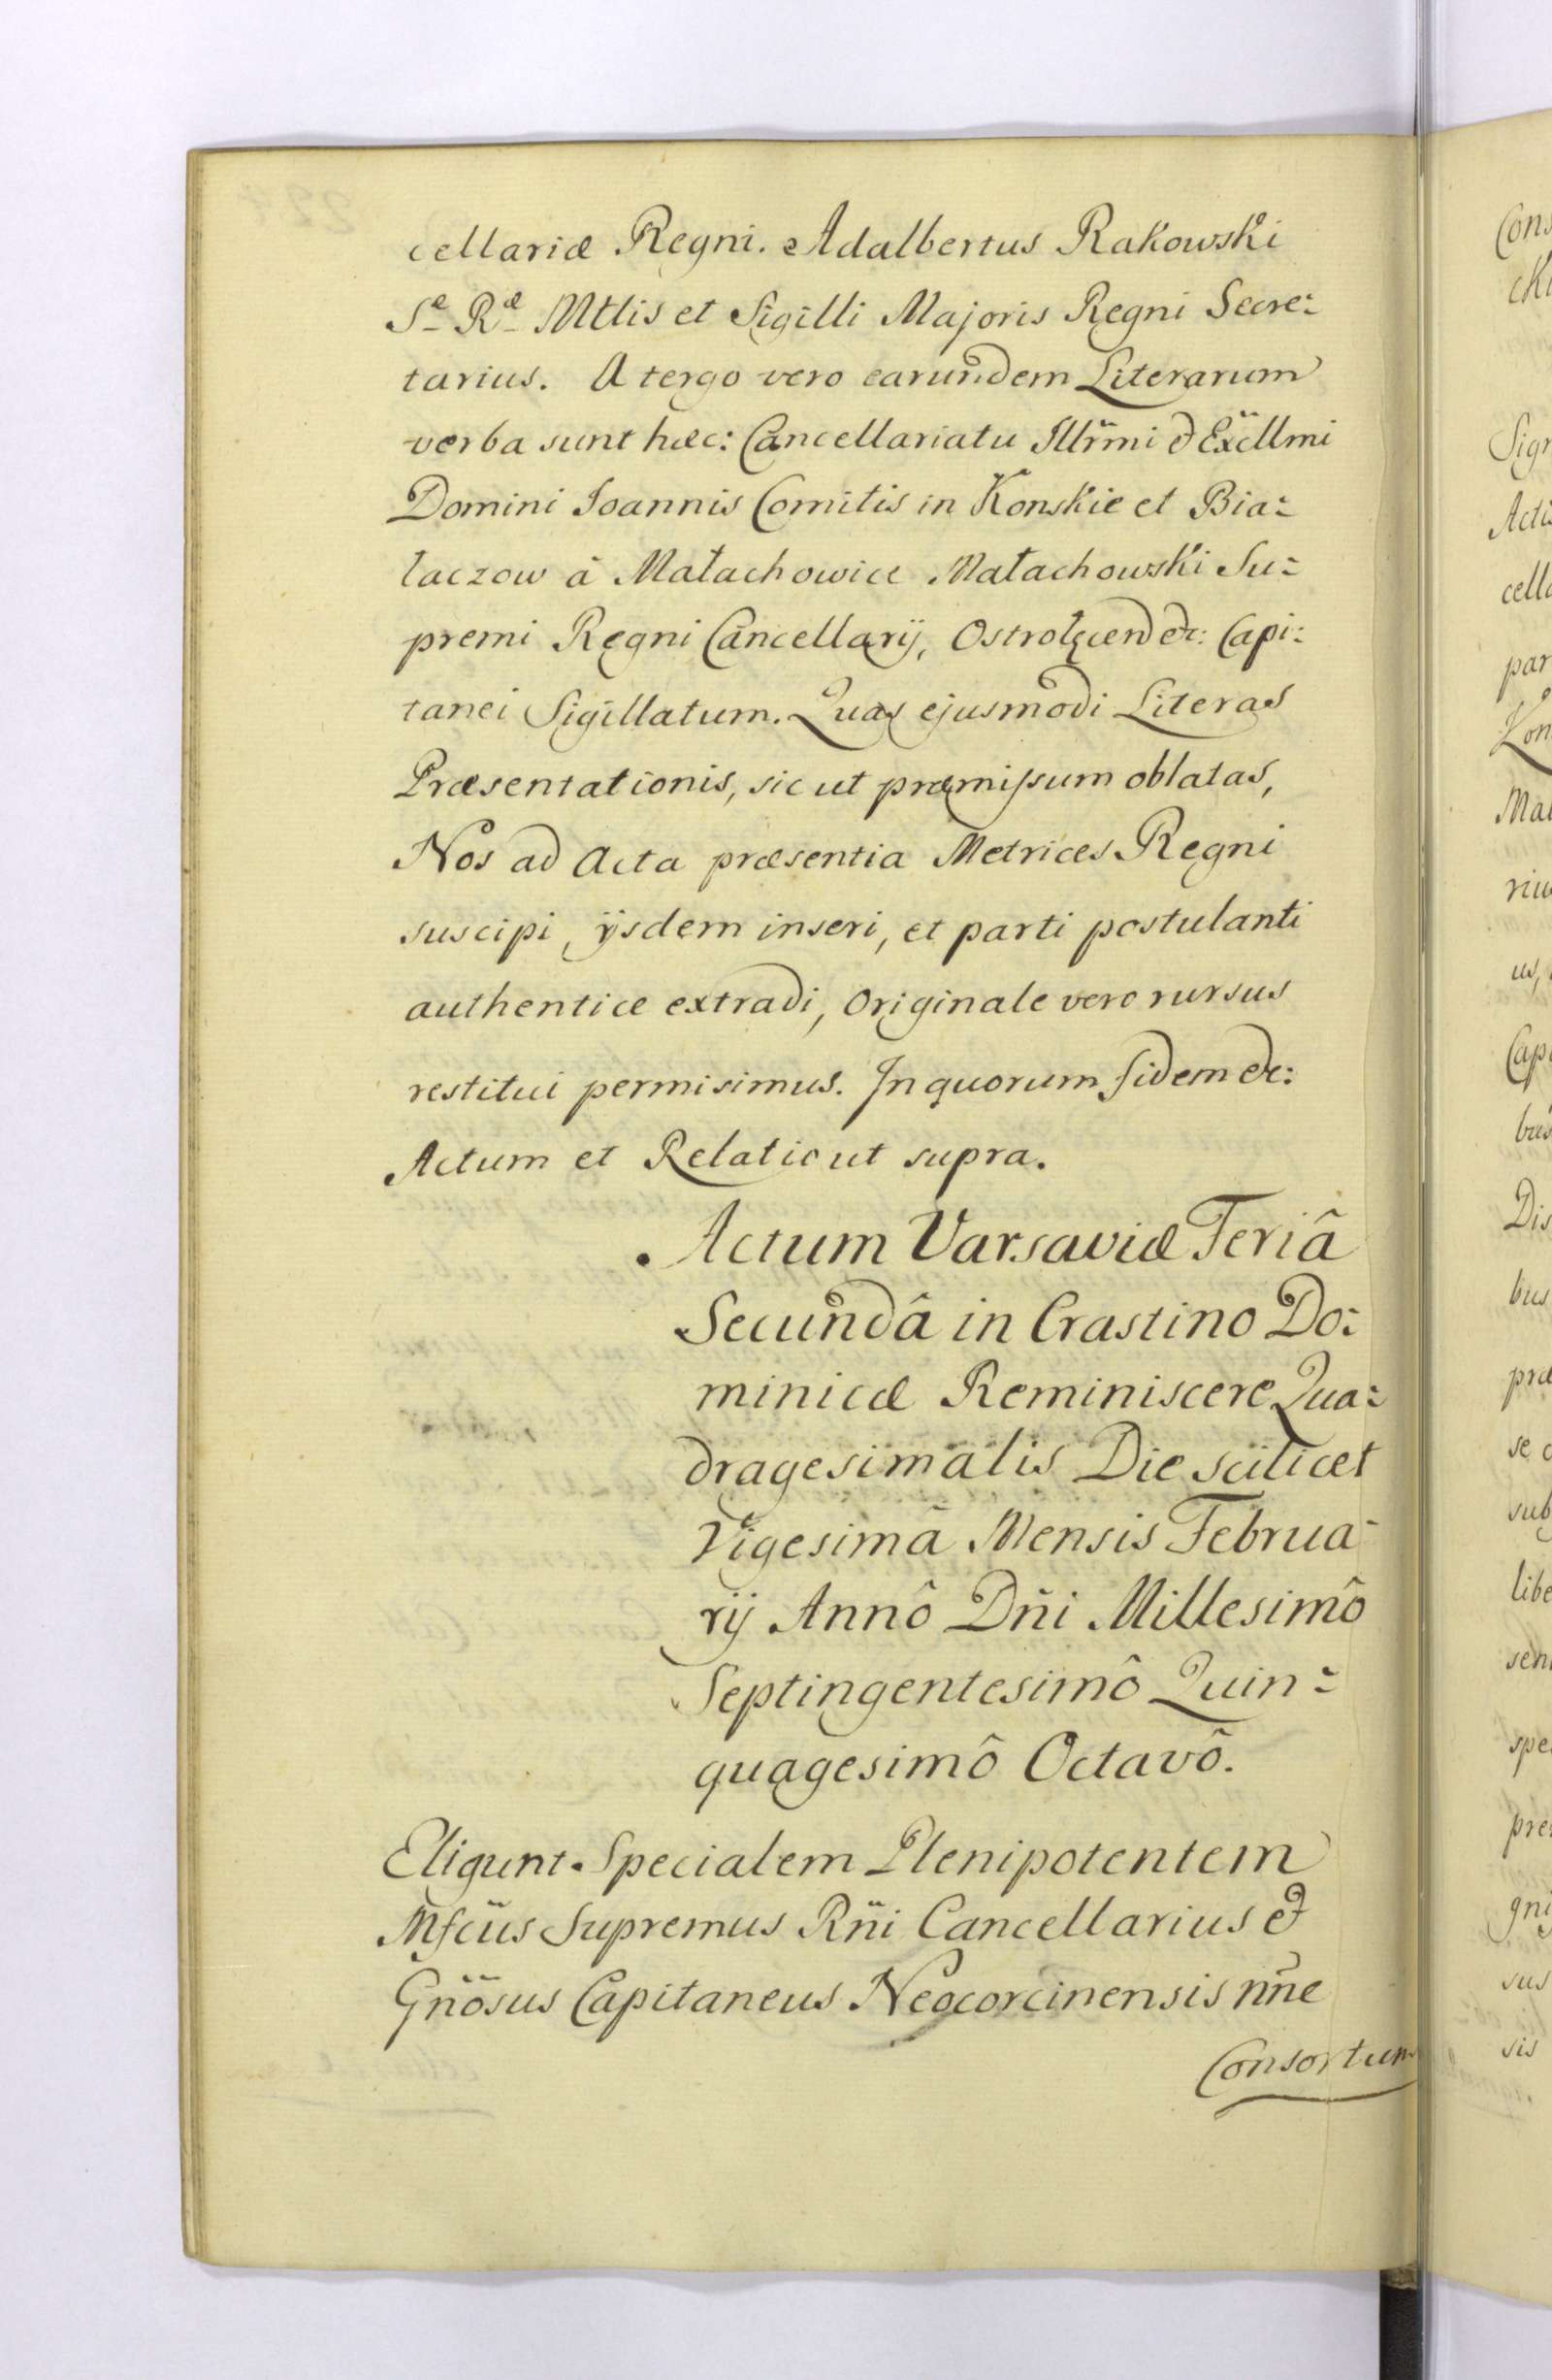 cellariæ Regni. Adalbertus Rakowski
Sæ Ræ Mttis et Sigilli Majoris Regni Secre=
tarius. A tergo vero earundem Literarum
verba sunt hæc: Cancellariatu Illrmi & Excllmi
Domini Joannis Comitis in Konskie et Bia=
laczow â Małachowice Małachowski Su=
premi Regni Cancellarij, Ostrołęcen &c: Capi=
tanei Sigillatum. Quas ejusmodi Literas
Præsentationis, sic ut præmissum oblatas,
Nos ad Acta præsentia Metrices Regni
suscipi, ijsdem inseri, et parti postulanti
authentice extradi, Originale vero rursus
restitui permisimus. In quorum fidem &c:
Actum et Relatio ut supra.
Actum Varsaviæ Feriâ
Secundâ in Crastino Do=
minicæ Reminiscere Qua=
dragesimalis Die scilicet
Vigesimâ Mensis Februa=
rij Annô Dñi Millesimô
Septingentesimô Quin=
quagesimô Octavô.
Eligunt Specialem Plenipotentem
Mfcus Supremus Rñi Cancellarius &
Gñosus Capitaneus Neocorcinensis nñe
Consortum
224